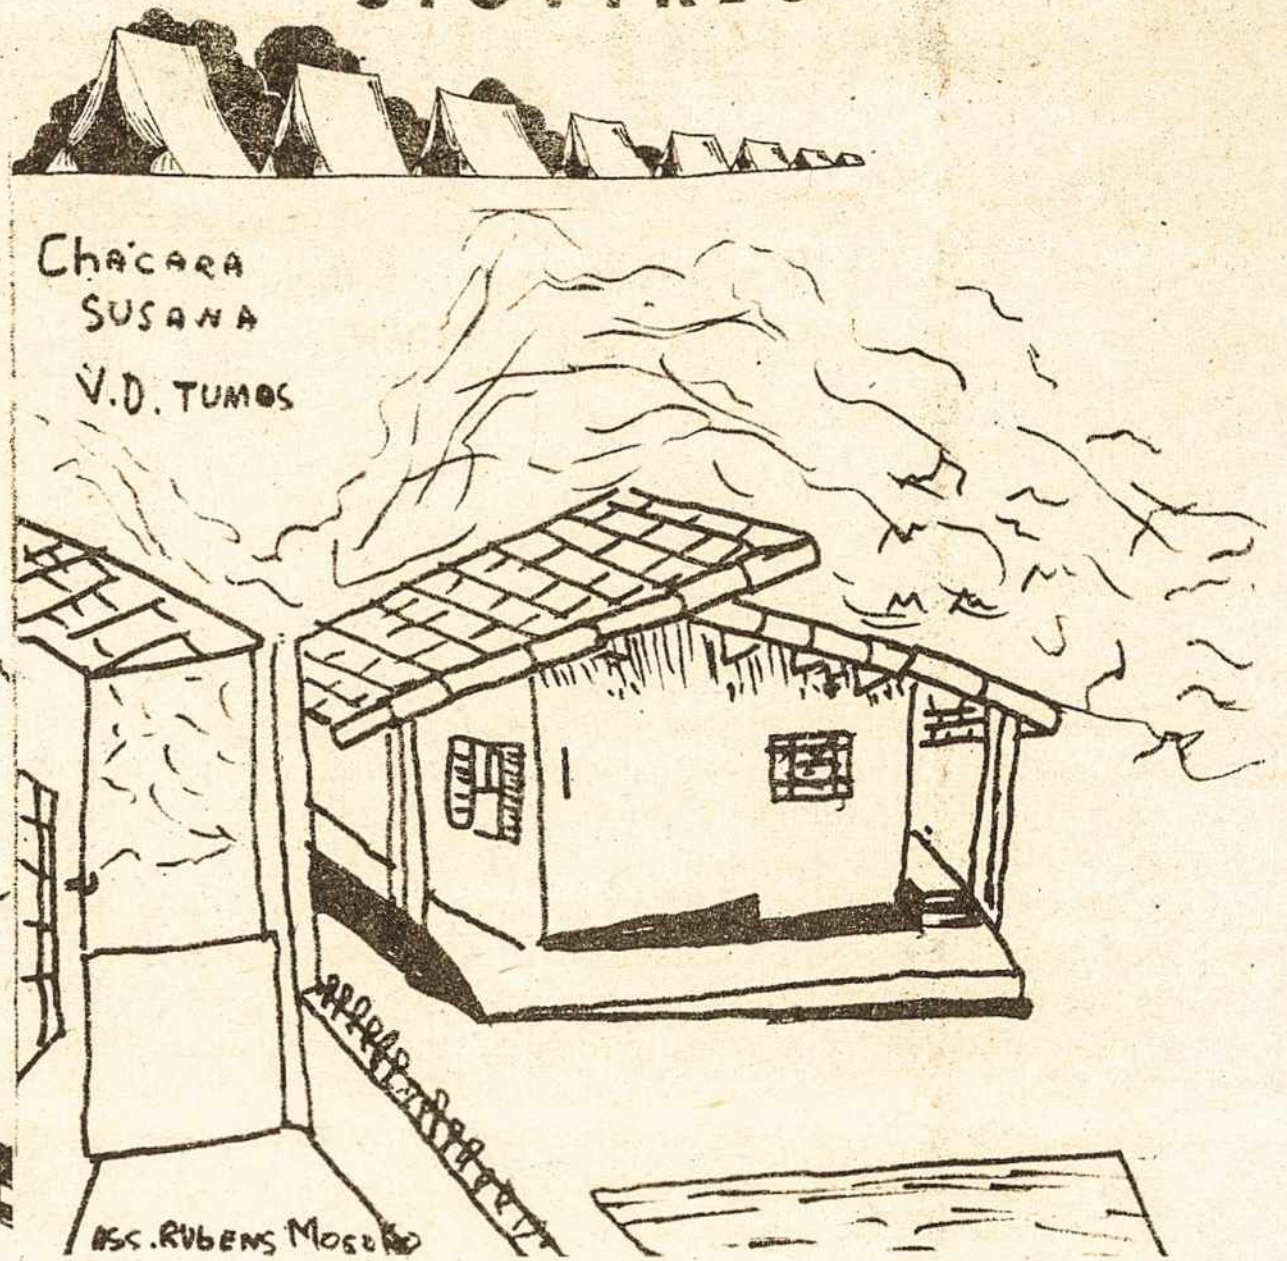 CháCARA
SUSANA
V.D. TUMOS
ASS. RUBENS